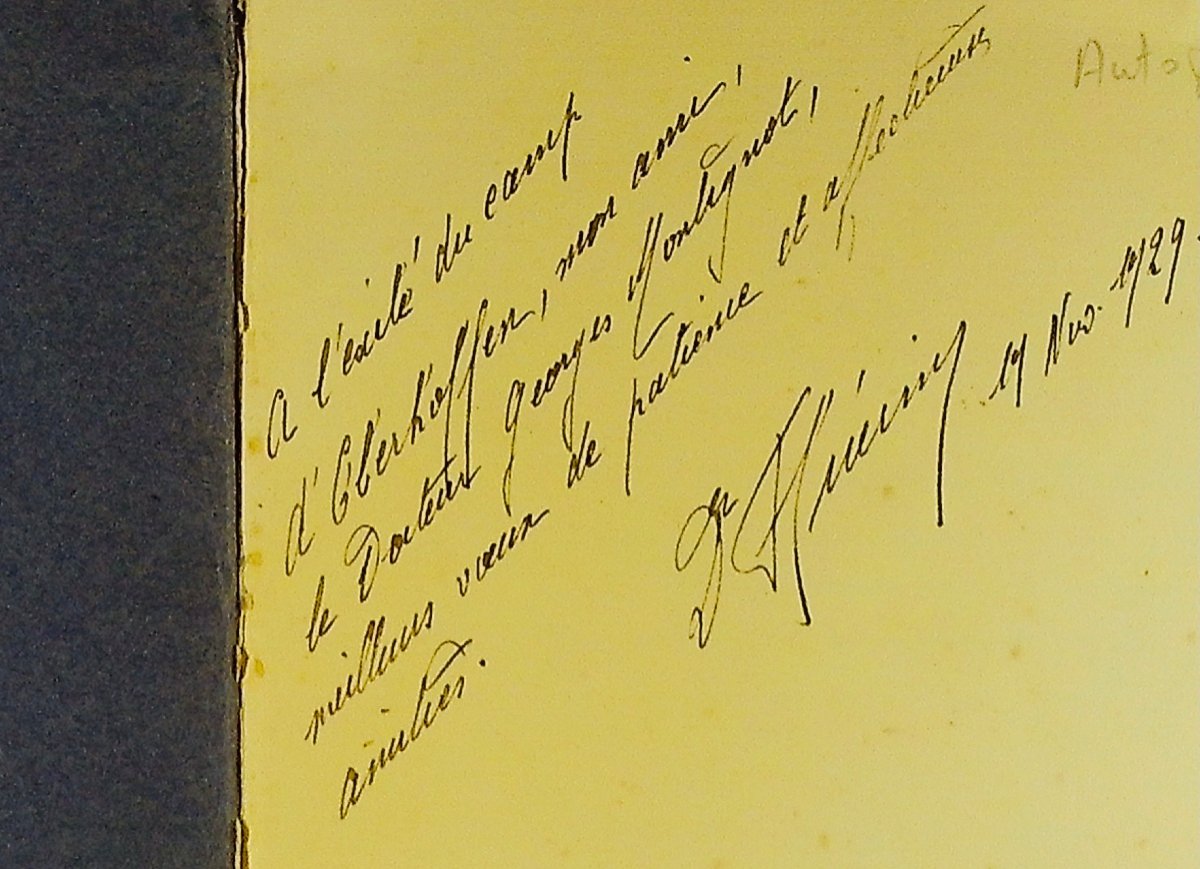 A l'exilé du camp
d'Oberhoffen, mon ami,
le Docteur Georges Montignot,
meilleurs vœux de patience et affectueuses
amitiés.
Dr
Nov. 1929.
Auto